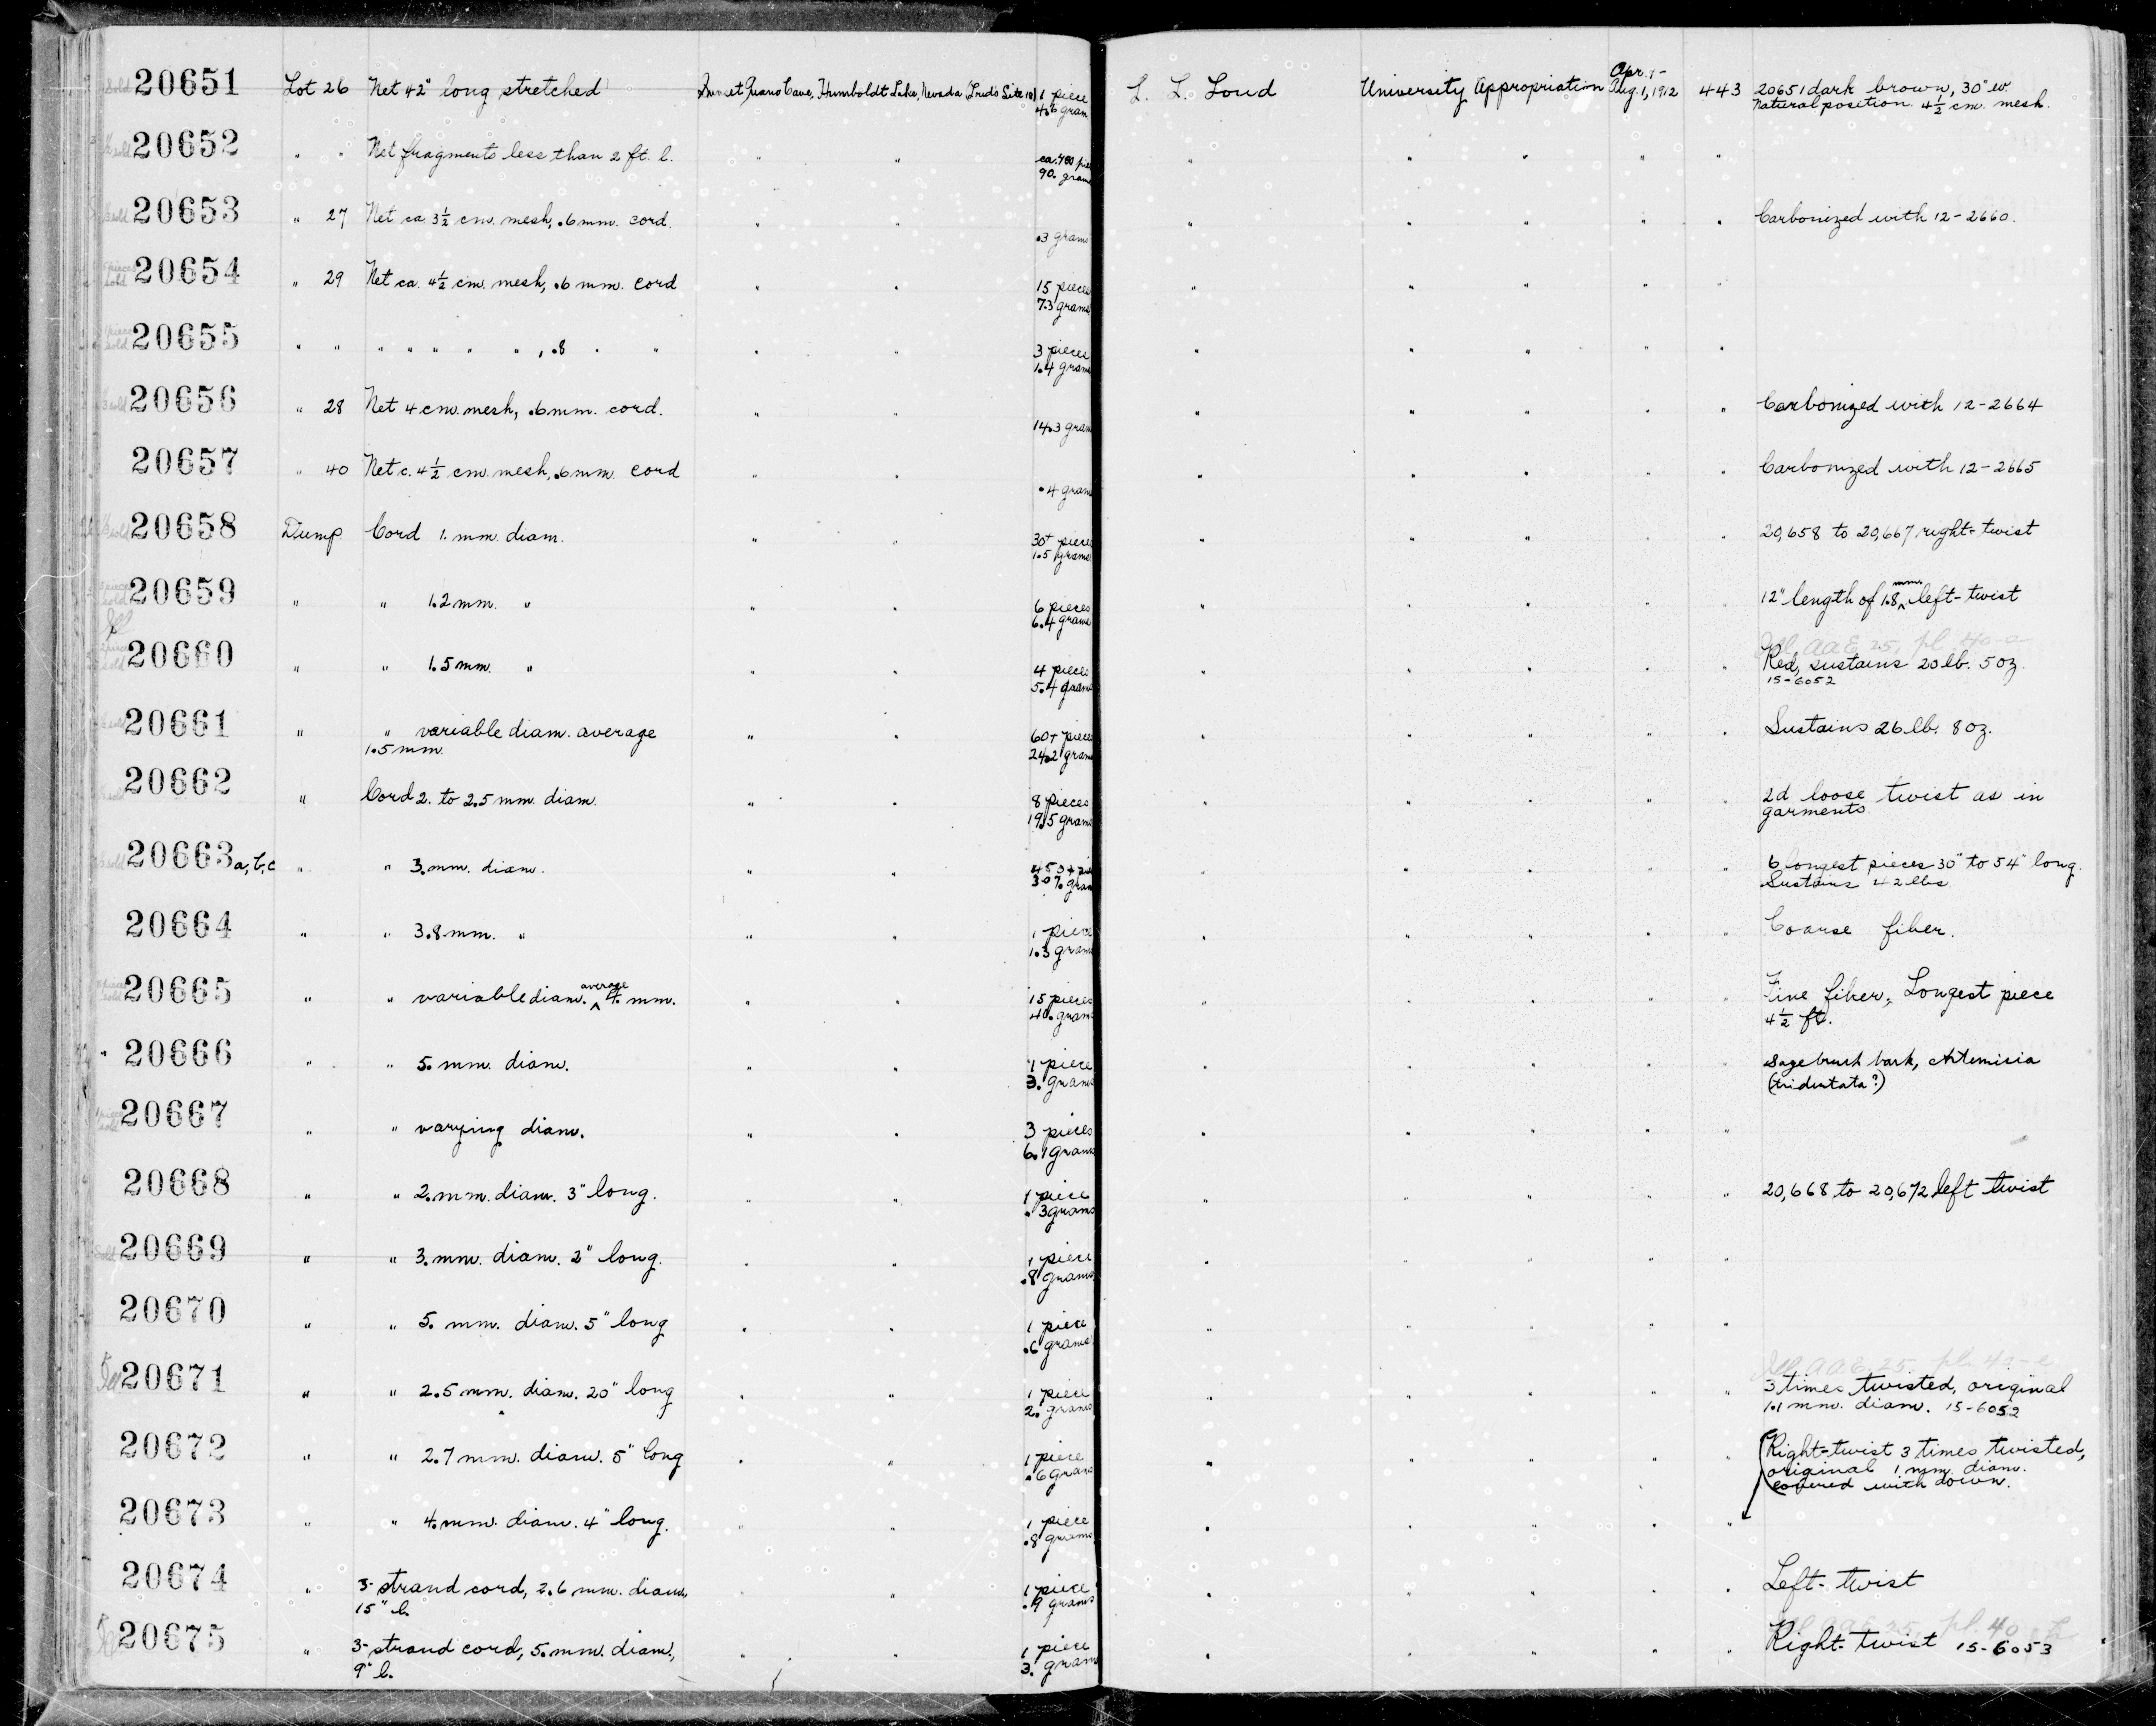 20651 Lot 26 Net 42" long stretched Sunset Guano Cave, Humboldt Lake, Nevada 1 piece L. L. Loud University Appropriation Apr. 1- Aug. 1, 1912 443 20651 dark brown, 30" w
gram Natural position 4½ cm. mesh.
20652 " " Net fragments less than 2 ft. l. " " " " " " "
90. grams
20653 " 27 Net ca. 3½ cm. mesh, .6 mm. cord. " " " " " " " Carbonized with 12-2660.
.3 grams
20654 " 29 Net ca. 4½ cm. mesh, .6 mm. cord " " 15 pieces " " " " "
7.3 grams
20655 " " " " " " " , .8 " " " " 3 pieces " " " " "
1.4 grams
20656 " 28 Net 4 cm. mesh, .6 mm. cord. " " " " " " " Carbonized with 12-2664
14.3 grams
20657 " 40 Net c. 4½ cm. mesh, .6 mm. cord " " " " " " " Carbonized with 12-2665
.4 grams
20658 Dump Cord 1. mm. diam. " " 30+ pieces " " " " " 20,658 to 20,667 right-twist
1.5 grams
20659 " " 1.2 mm. " " " 6 pieces " " " " " 12" length of 1.8 mm. left-twist
6.4 grams
20660 " " 1.5 mm. " " " 4 pieces " " " " " Red, sustains 20 lb. 5 oz.
5.4 grams 15-6052
20661 " " variable diam. average " " 60+ pieces " " " " " Sustains 26 lb. 8 oz.
1.5 mm. 24.2 grams
20662 " Cord 2. to 2.5 mm. diam. " " 8 pieces " " " " " 2d loose twist as in
19.5 grams garments
20663 a, b, c " " 3. mm. diam. " " " " " " " 6 longest pieces 30" to 54" long.
Sustains 42 lbs
20664 " " 3.8 mm. " " " 1 piece " " " " " Coarse fiber.
1.3 grams
20665 " " variable diam. average 4. mm. " " 15 pieces " " " " " Fine fiber, Longest piece
40. grams 4½ ft.
20666 " " 5. mm. diam. " " 1 piece " " " " " Sagebrush bark, Artemisia
3. grams (tridentata?)
20667 " " varying diam. " " 3 pieces " " " " "
6.1 grams
20668 " " 2. mm. diam. 3" long. " " 1 piece " " " " " 20,668 to 20,672 left twist
.3 grams
20669 " " 3. mm. diam. 2" long. " " 1 piece " " " " "
.8 grams
20670 " " 5. mm. diam. 5" long " " 1 piece " " " " "
.6 grams
20671 " " 2.5 mm. diam. 20" long " " 1 piece " " " " " 3 times twisted, original
2. grams 1.1 mm. diam. 15-6052
20672 " " 2.7 mm. diam. 5" long " " 1 piece " " " " " Right-twist 3 times twisted,
.6 grams original 1 mm. diam.
covered with down.
20673 " " 4. mm. diam. 4" long. " " 1 piece " " " " "
.8 grams
20674 " 3-strand cord, 2.6 mm. diam, " " 1 piece " " " " " Left-twist
15" l. .9 grams
20675 " 3-strand cord, 5. mm. diam., " " 1 piece " " " " " Right-twist 15-6053
9" l. 3. grams